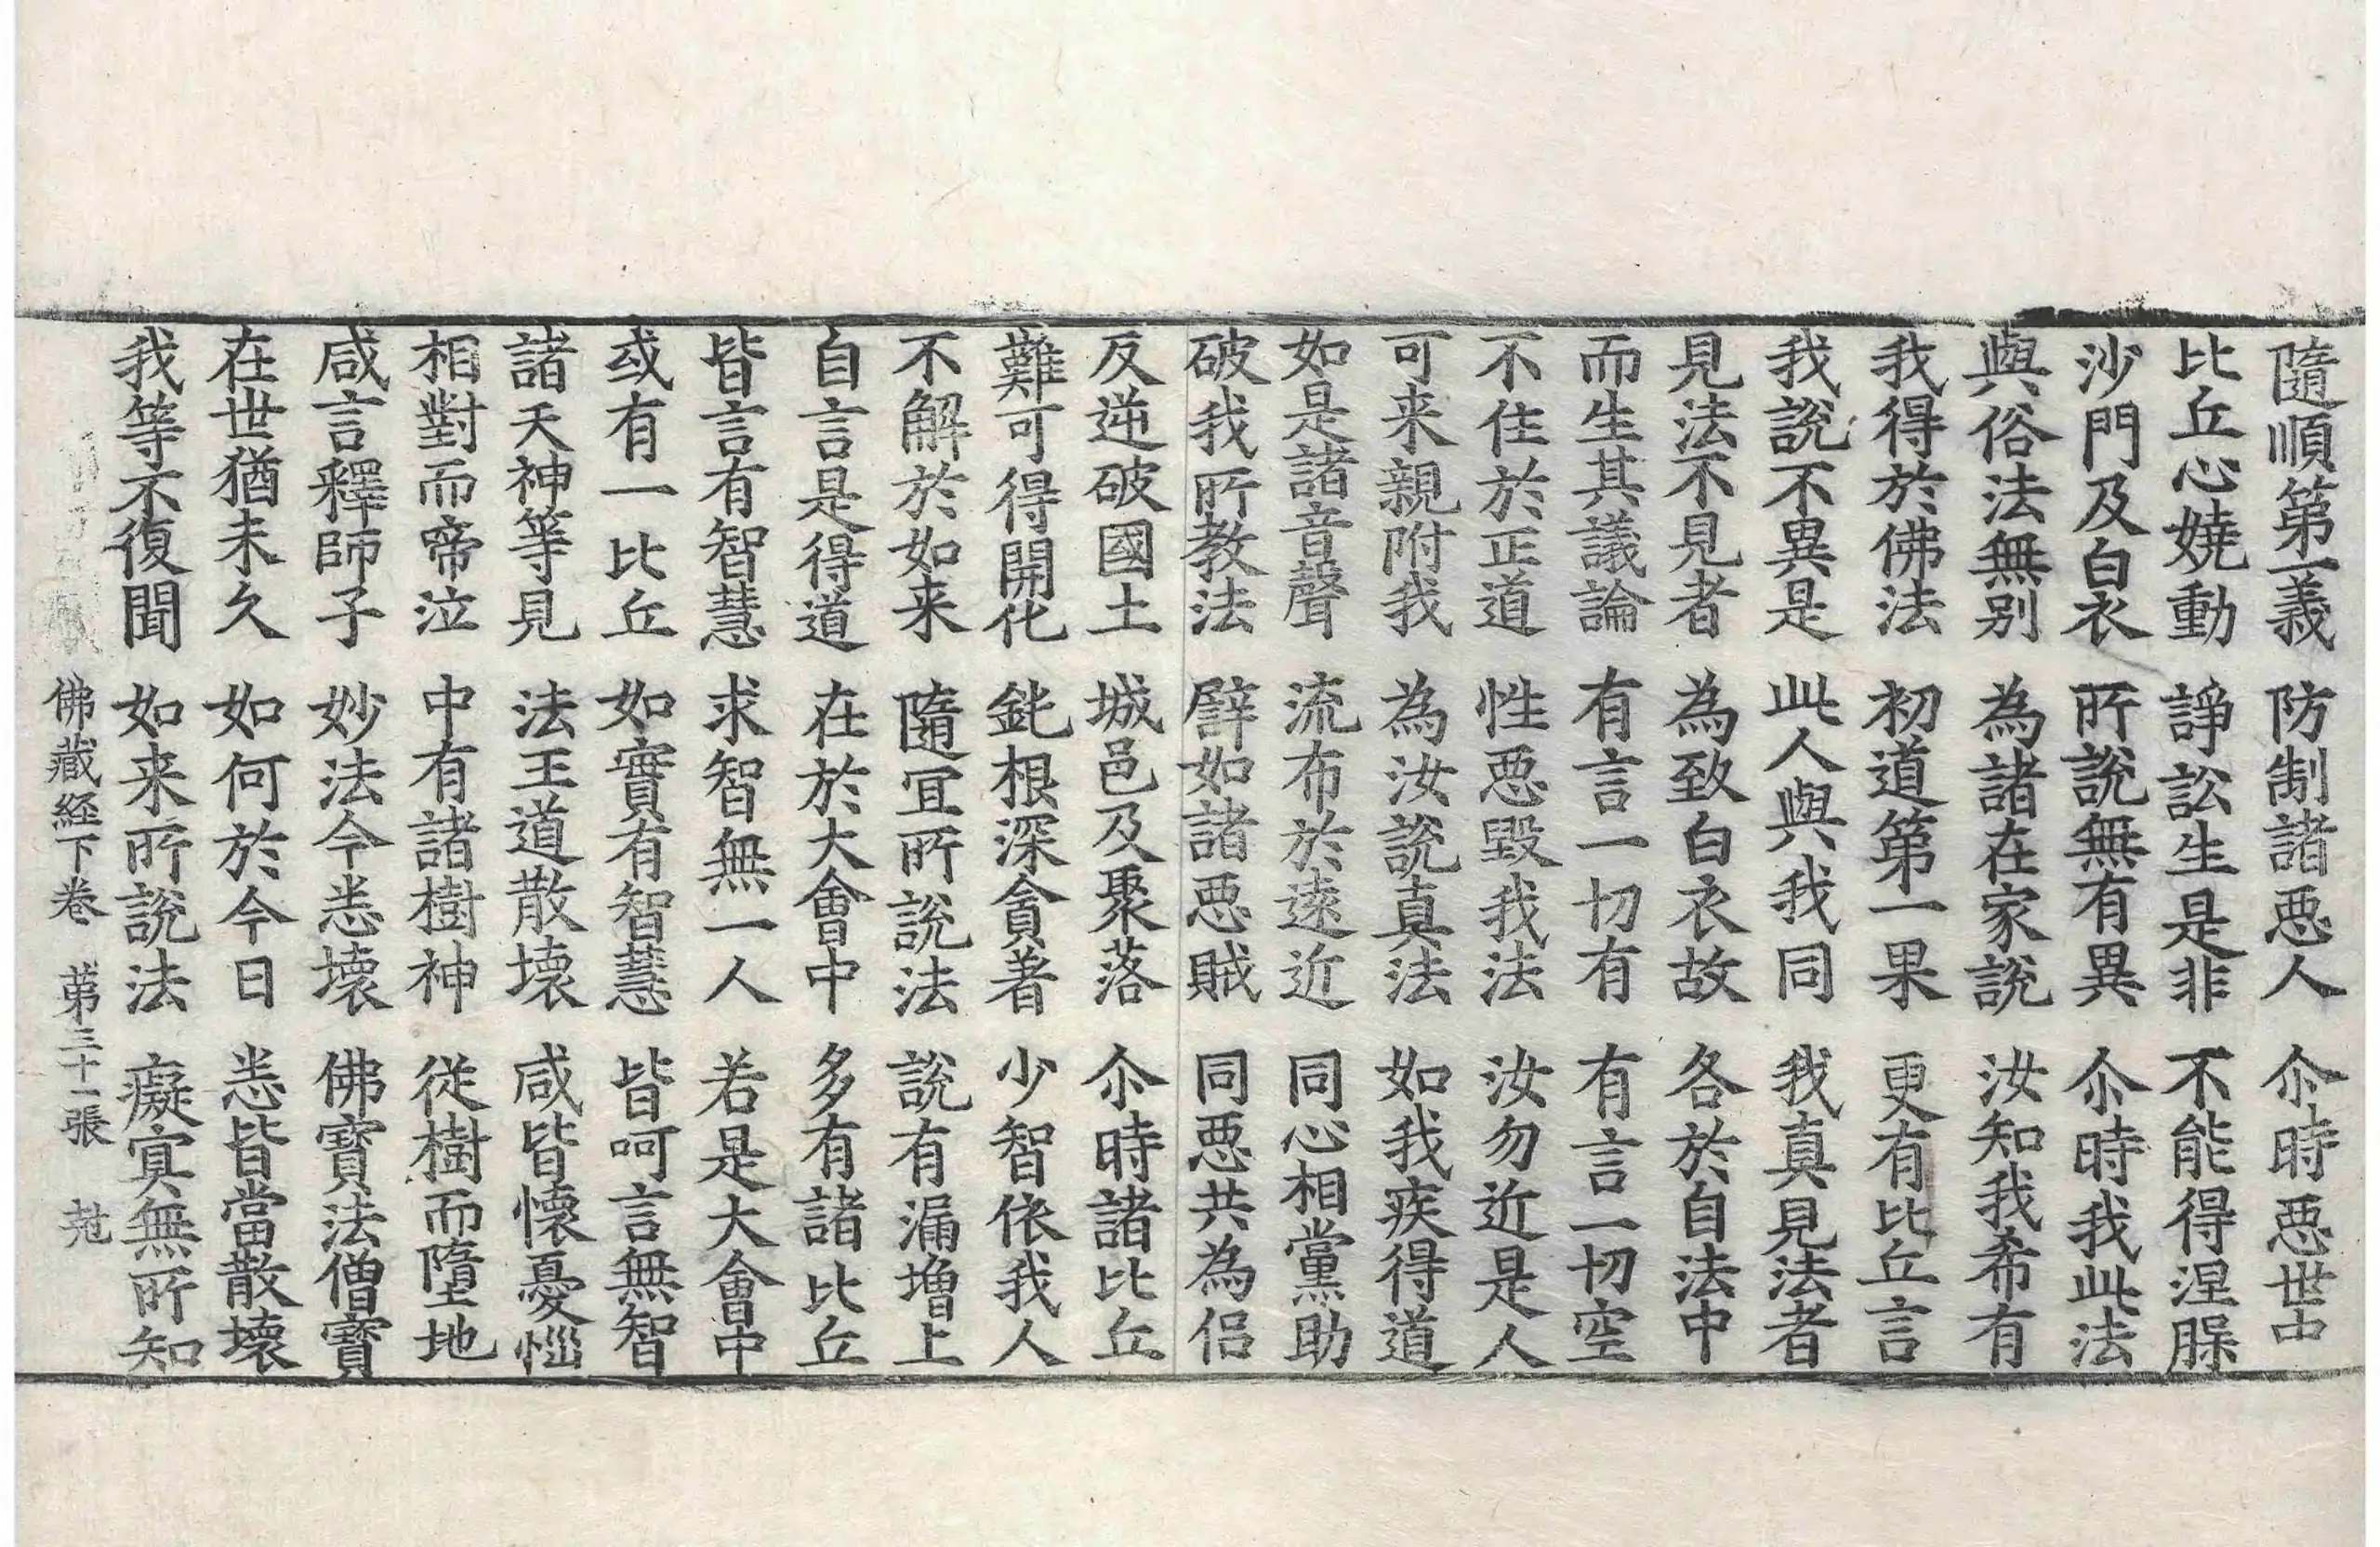 隨順第一義　防制諸惡人　尒時惡世中
比丘心嬈動　諍訟生是非　不能得涅脲
沙門及白衣　所說無有異　尒時我此法
與俗法無別　為諸在家說　汝知我希有
我得於佛法　初道第一果　更有比丘言
我說不異是　此人與我同　我真見法者
見法不見者　為致白衣故　各於自法中
而生其議論　有言一切有　有言一切空
不住於正道　性惡毀我法　汝勿近是人
可来親附我　為汝說真法　如我疾得道
如是諸音聲　流布於遠近　同心相黨助
破我所教法　譬如諸惡賊　同惡共為侶
反逆破國土　城邑及聚落　尒時諸比丘
難可得開化　鈍根深貪著　少智依我人
不解於如来　隨宜所說法　說有漏增上
自言是得道　在於大會中　多有諸比丘
皆言有智慧　求智無一人　若是大會中
或有一比丘　如實有智慧　皆呵言無智
諸天神等見　法王道散壞　咸皆懷憂惱
相對而啼泣　中有諸樹神　從樹而墮地
咸言釋師子　妙法今悉壞　佛寶法僧寶
在世猶未久　如何於今日　悉皆當散壞
我等不復聞　如来所說法　癡冥無所知
佛藏經下卷　第三十一張　尅